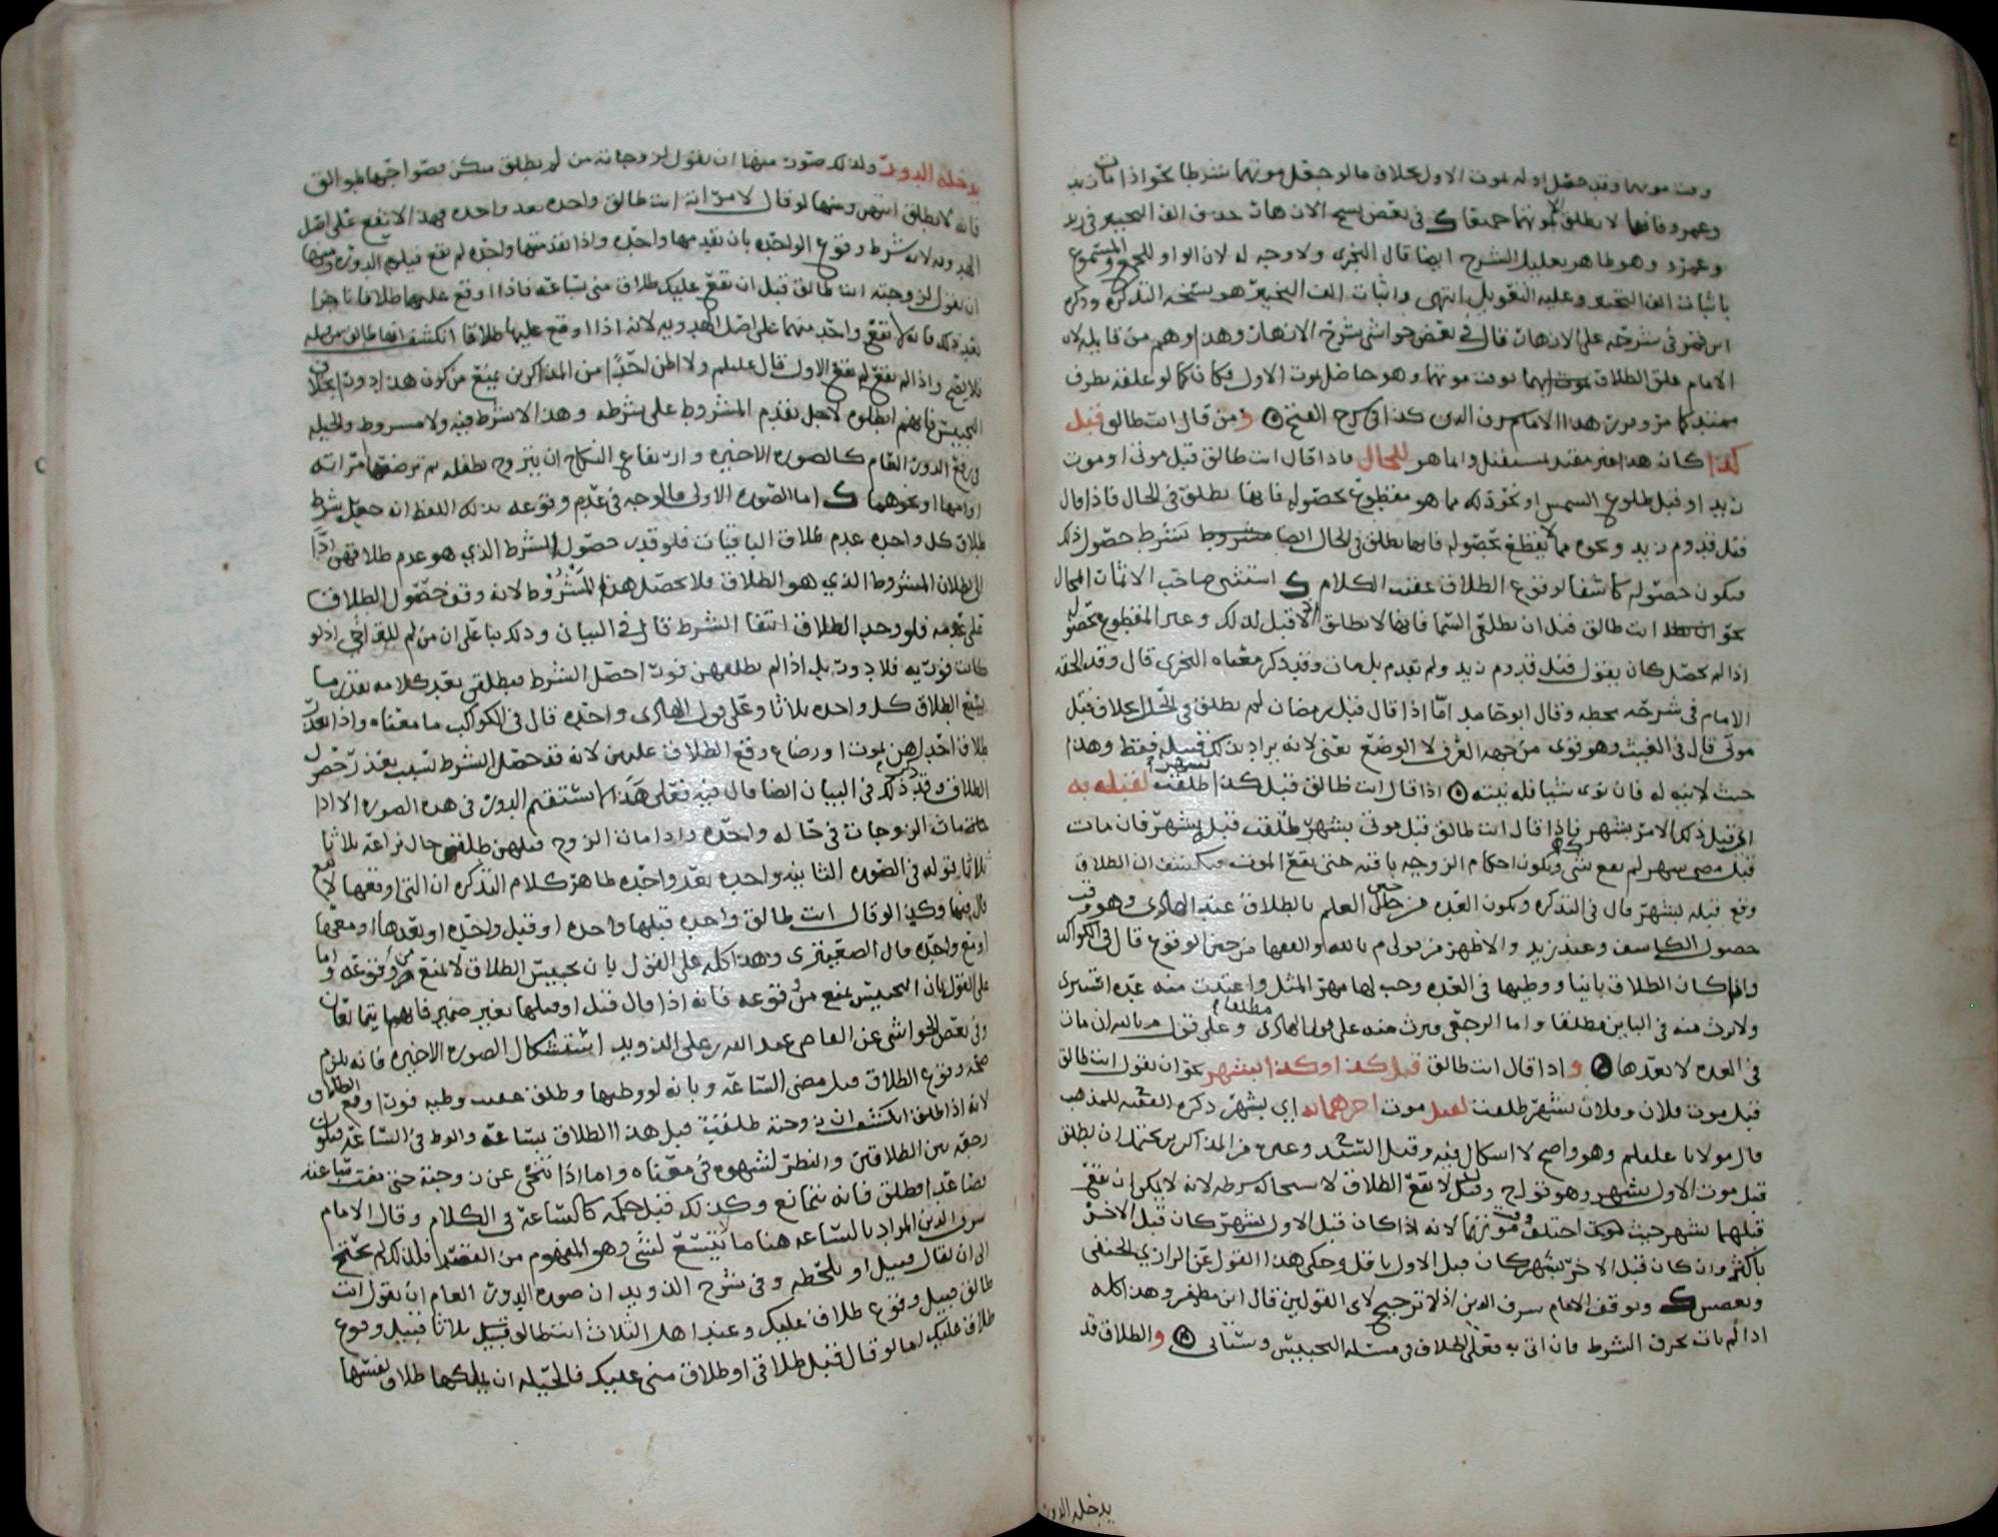 وقت موتهما وقد حصل اوله بموت الاول بخلاف ما لو جعل موتهما شرطا نحو اذا مات زيد
وعمرو فانها لا تطلق الا بموتهما جميعا ك في بعض نسخ الازهار حذف الف التخيير في زيد
وعمرو وهو ظاهر تعليل الشرح ايضا قال النجري ولا وجه له لان الواو للجمع والمسموع
باثبات الف التخيير وعليه التعويل انتهى واثبات الف التخيير هو نسخه التذكره وذكره
ابن في شرحه على الازهار قال في بعض حواشي شرح الازهار وهذا وهم من قايله لان
الامام علق الطلاق بوقت موتهما وهو حاصل بموت الاول فكان كما لو علقه بظرف
ممتد كما مر هذا الامام شرف الدين كذا في شرح الفتح ومن قال انت طالق قبل
كذا كان هذا غير مقيد لمستقبل وانما هو للحال فاذا قال انت طالق قبل موتي او موت
زيد او قبل طلوع الشمس او نحو ذلك مما هو مقطوع بحصوله فانها تطلق في الحال فاذا قال
قبل قدوم زيد ونحوه مما لا يقطع بحصوله فانها تطلق في الحال ايضا مشروط بشرط حصول ذلك
فيكون حصوله كاشفا لوقوع الطلاق عقيب الكلام ك استثنى صاحب الاثمار المحال
نحو انت طالق قبل ان تطلعي السما فانها لا تطلق اذ لا قبل لذلك وغير المقطوع بحصوله
اذا لم يحصل كان يقول قبل قدوم زيد ولم يقدم بل مات وقد ذكر معناه النجري قال وقد الحقه
الامام في شرحه بخطه وقال ابو حامد اما اذا قال قبل رمضان لم تطلق في الحال بخلاف قبل
موتي قال في الغيث وهو قوي من جهه العرف لا الوضع يعني لانه يراد بذلك قبيله فقط وهذا
حيث لا نيه له فان نوى شيا فله نيته اذا قال انت طالق قبل كذا بشهر طلقت لقبله به
اي قبل ذلك الامر بشهر فاذا قال انت طالق قبل موتي بشهر طلقت قبل بشهر فان مات
قبل مضي شهر لم يقع شي وتكون احكام الزوجيه باقيه حتى يقع الموت فينكشف ان الطلاق
وقع قبله بشهر قال في التذكره وتكون العده من حين العلم بالطلاق عند الهادي وهو وقت
حصول الكاشف وعند زيد والاظهر من قولي م بالله والفقها من حين الوقوع قال في الكواكب
وان كان الطلاق باينا ووطيها في العده وجب لها مهر المثل واعتدت منه عده استبرى
ولا ترث منه في الباين مطلقا واما الرجعي فترث منه على قول الهادي مطلقا وعلى قول م بالله ان مات
في العده لا بعدها واذا قال انت طالق قبل كذا وكذا بشهر نحو ان يقول انت طالق
قبل موت فلان وفلان بشهر طلقت لقبل موت اخرهما به اي بشهر ذكره الفقيه للمذهب
قال مولانا عليلم وهو واضح لا اشكال فيه وقيل السيد وغيره من المذاكرين يحتمل ان تطلق
قبل موت الاول بشهر وهو قول ح وقيل لا تقع الطلاق لاستحاله شرطه لانه لا يمكن ان يقع
قبلهما بشهر حيث اختلف وقت موتهما لانه اذا كان قبل الاول بشهر كان قبل الاخر
باكثر وان كان قبل الاخر بشهر كان قبل الاول باقل وحكى هذا القول عن الرازي الحنفي
وبعضش ك وتوقف الامام شرف الدين اذ لا ترجيح لاي القولين قال ابن مظفر وهذا كله
اذا لم يات بحرف الشرط فان اتى به فعلى الخلاف في مسئله التحبيس وستاتي والطلاق قد
يدخله الدور
يدخله الدور وللذلك صور منها ان يقول لزوجاته من لم تطلق منكن فصواحبها طوالق
فانه لا تطلق ايتهن ومنها لو قال لامراته انت طالق واحده بعد واحده فهذا لا تقع على اصل
الهدويه لانه شرط وقوع الواحده بان تقدمها واحده واذا تقدمتها واحده لم تقع فيلزم الدور ومنها
ان يقول لزوجته انت طالق قبل ان يقع عليك طلاق مني بساعه فاذا اوقع عليها طلاقا ناجزا
بعد ذلك فانه لا يقع واحد منهما على اصل الهدويه لانه اذا اوقع عليها طلاقا انكشف انها طالق من قبله
فلا يقع واذا لم يقع لم يقع الاول قال عليلم ولا اظن احدا من المذاكرين يمنع من كون هذا دورا بخلاف
التحبيس فانهم ابطلوه لاجل تقدم المشروط على شرطه وهذا لا شرط فيه ولا مشروط والحيله
في رفع الدور العام كالصوره الاخيره وارتفاع النكاح ان يتزوج بطفله ثم ترضعها امراته
او امها او نحوهما ك اما الصوره الاولى فالوجه في عدم وقوعه بذلك اللفظ انه جعل شرط
طلاق كل واحده عدم طلاق الباقيات فلو قدر حصول الشرط الذي هو عدم طلاقهن ادا
الى بطلان المشروط الذي هو الطلاق فلا يحصل هذا المشروط لانه وقف حصول الطلاق
على عدمه فلو وجد الطلاق انتفا الشرط قال في البيان وذلك بنا على ان من لم للتراخي اذ لو
كانت فوريه فلا دور بل اذا لم يطلقهن فورا حصل الشرط فيطلقن بعد كلامه بقدر ما
يتسع الطلاق كل واحده ثلاثا وعلى قول الهادي واحده قال في الكواكب ما معناه واذا تعذر
طلاق احداهن بموت او رضاع وقع الطلاق عليهن لانه قد حصل الشرط لسبب تعذر حصول
الطلاق وقد ذكره في البيان ايضا قال فيه فعلى هذا لا يستقيم الدور في هذه الصوره الا اذا
ماتت الزوجات في حاله واحده واذا مات الزوج قبلهن طلقن حال نزاعه ثلاثا
ثلاثا قوله في الصوره الثانيه واحده بعد واحده ظاهر كلام التذكره ان التي اوقعها لا تقع
قال فيها وكذا لو قال انت طالق واحده قبلها واحده او قبل واحده او بعدها او معها
اوقع واحده قال الصعيتري وهذا كله على القول بان تحبيس الطلاق لا يمنع من وقوعه واما
على القول بان التحبيس يمنع من وقوعه فانه اذا قال قبل او قبلها بغير ضمير فانهما يتمانعان
وفي بعض الحواشي عن القاضي عبد الله بن علي الذويد استشكال الصوره الاخيره فانه يلزم
صحه وقوع الطلاق قبل مضي الساعه وبانه لو وطيها وطلق عقيب وطيه فورا وقع الطلاق
لانه اذا طلق انكشف ان زوجته طلقت قبل هذا الطلاق بساعه والوطء في الساعه فيكون
رجعه بين الطلاقين والنظر لشهوه في معناه واما اذا تنحى عن زوجته حتى بقيت ساعه
فصاعدا وطلق فانه يتمانع وكذلك قبل حكمه كالساعه في الكلام وقال الامام
شرف الدين المراد بالساعه هنا ما لا يتسع لشي وهو المفهوم من القصد فلذلك لم يحتج
الى ان يقال قبيل او بلحظه وفي شرح الذويد ان صوره الدور العام ان يقول انت
طالق قبيل وقوع طلاق عليك وعند اهل الثلاث انت طالق قبيل ثلاثا قبيل وقوع
طلاق عليك اما لو قال قبل طلاقي او طلاق مني عليك فالحيله ان يملكها طلاق نفسها